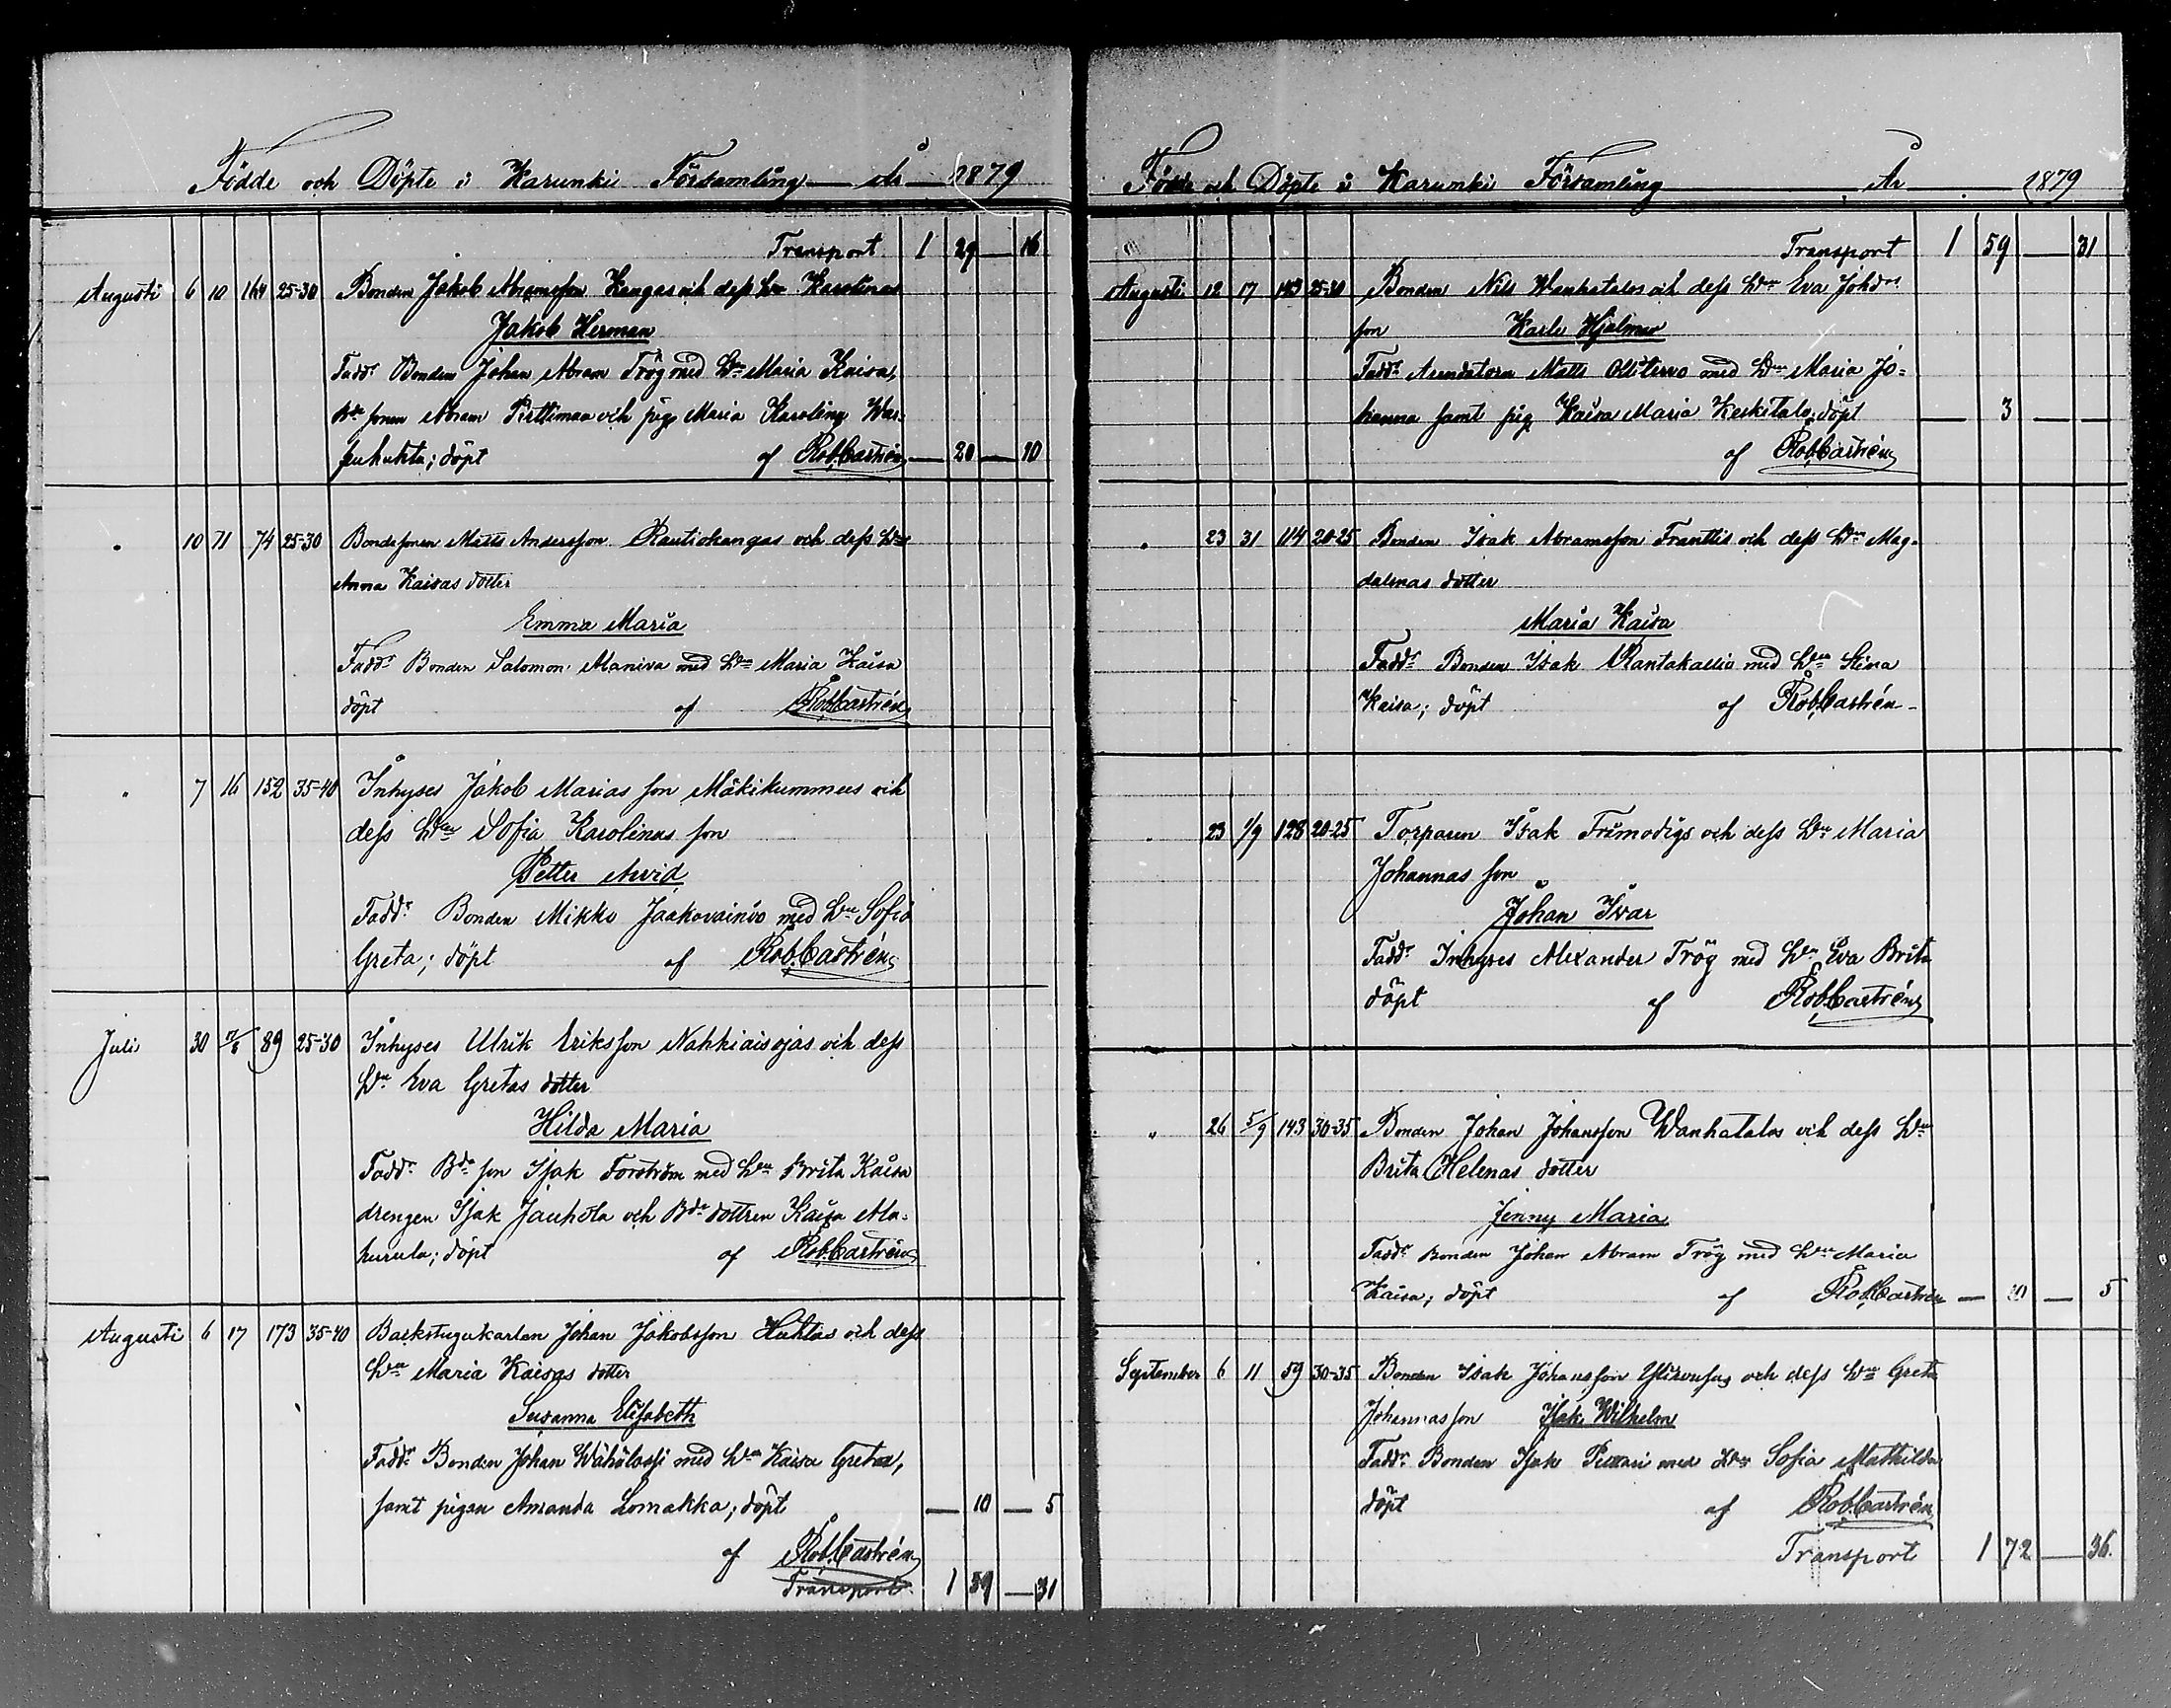 Födde och Döpte i Karunki Församling år 1879
Transport 1 29 — 16
Augusti 6 10 164 25-30 Bonden Jakob Abramsson Kangas och dess Hu Karolinas
Jakob Herman
Fadd: Bonden Johan Abram Trög med Hu Maria Kaisa,
Bde sonen Abram Pirttimaa och pig. Maria Karolina
döpt af Rob. Castrén — 20 — 10
" 10 71 74 25-30 Bondesonen Matts Andersson Rautiokangas och dess Hus
Anna Kaisas dotter
Emma Maria
Fadd: Bonden Salomon Alaniva med Hu Maria Kaisa
döpt af Rob. Castrén
" 7 16 152 35-40 Inhyses Jakob Marias son Mäkikummus och
dess Hu Sofia Karolinas son
Petter Arvid
Fadd: Bonden Mikko Jaakovainio med Hu Sofia
Greta; döpt af Rob. Castrén
Juli 30 17/8 89 25-30 Inhyses Ulrik Eriksson Nahkiaisojas och dess
Hu Eva Gretas dotter
Hilda Maria
Fadd: Bde son Isak Forström med Hu Brita Kaisa
drengen Isak Jauhola och Bde dottren Kaisa Ala-
kurula; döpt af Rob. Castrén
Augusti 6 17 173 35-40 Backstugukarlen Johan Jakobsson Huhtas och dess
Hu Maria Kaisas dotter
Susanna Elisabeth
Fadd: Bonden Johan Wähälassi med Hu Kaisa Greta,
samt pigan Amanda Lomakka; döpt — 10 — 5
af Rob. Castrén
Transport 1 59 — 31
Födde och Döpte i Karunki Församling År 1879
Transport 1 59 — 31
Augusti 12 17 143 25-30 Bonden Nils Wanhatalos och dess Hu Eva Johds
son Karl Hjalmar
Fadd: Arendatorn Matts Ollitervo med Hu Maria Jo=
hanna samt pig. Kaisa Maria Keskitalo; döpt — 3 — —
af Rob. Castrén
" 23 31 114 20-25 Bonden Isak Abramsson Franttis och dess Hu Mag-
dalenas dotter
Maria Kaisa
Fadd: Bonden Isak Rantakallio med Hu Stina
Kaisa; döpt af Rob. Castrén
" 23 1/9 128 20-25 Torparen Isak Frimodigs och dess Hu Maria
Johannas son
Johan Ivar
Fadd: Inhyses Alexander Trög med Hu Eva Brita
döpt af Rob. Castrén
" 26 5/9 143 30-35 Bonden Johan Johansson Wanhatalos och dess Hu
Brita Helenas dotter
Jenny Maria
Fadd: Bonden Johan Abram Trög med Hu Maria
Kaisa; döpt af Rob. Castrén — 10 — 5
September 6 11 59 30-35 Bonden Isak Johansson och dess Hu Greta
Johannas son Isak Wilhelm
Fadd: Bonden Isak med Hu Sofia Mathilda
döpt af Rob. Castrén
Transport 1 72 — 36.